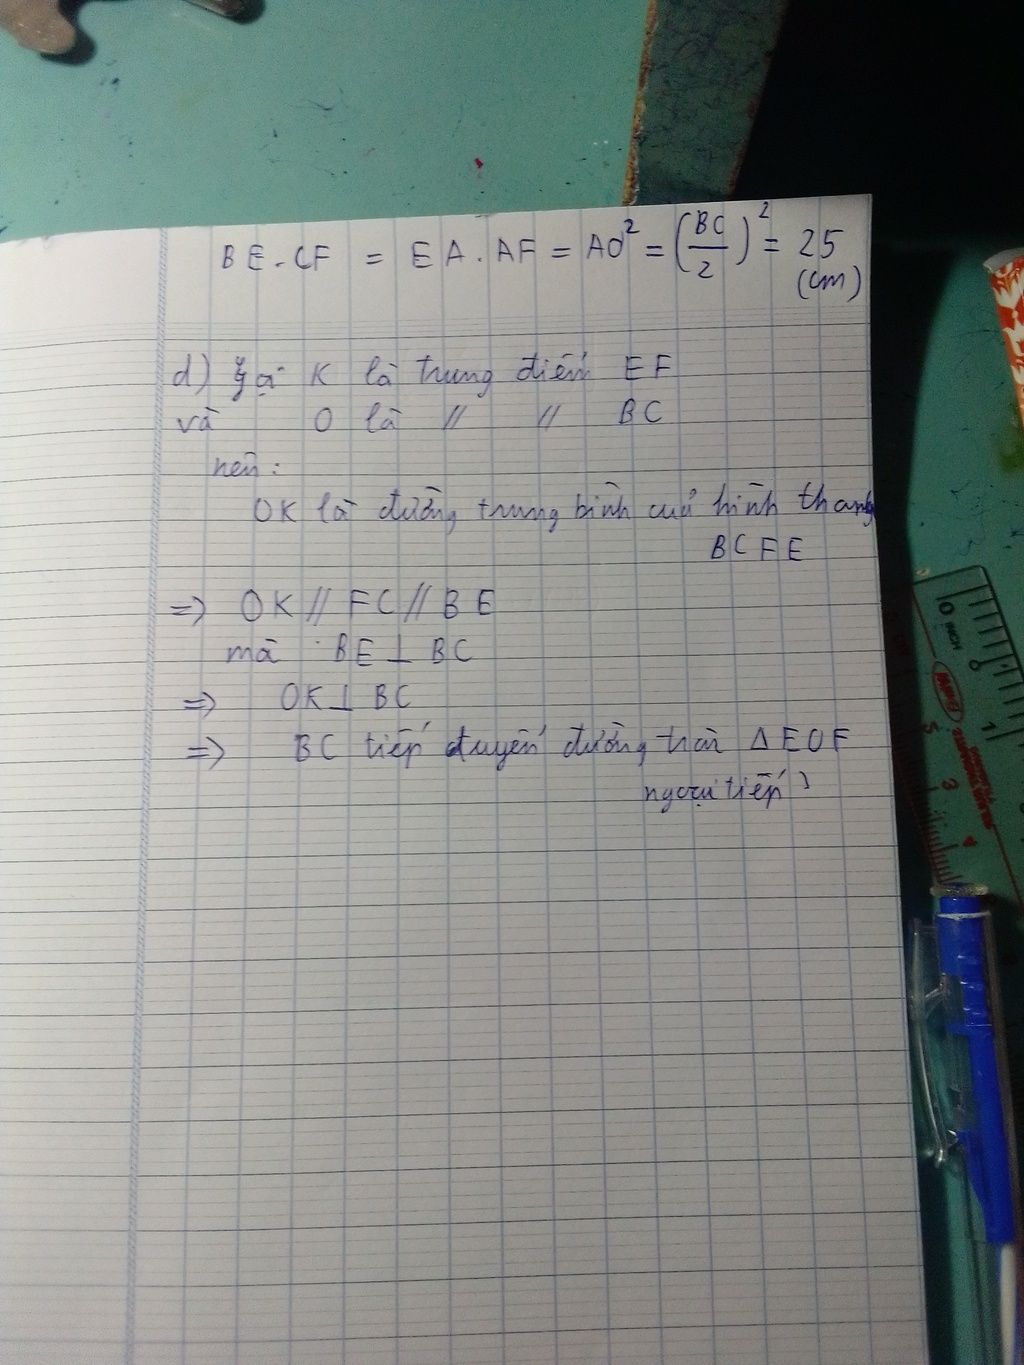 BE.CF = EA.AF = AO² = (BC/2)² = 25
(cm)
d) gọi K là trung điểm EF
và O là // // BC
nên:
OK là đường trung bình của hình thang
BCFE
=> OK // FC // BE
mà BE ⊥ BC
=> OK ⊥ BC
=> BC tiếp tuyến đường tròn Δ EOF
ngoại tiếp
0 INCH
1
5
3
4